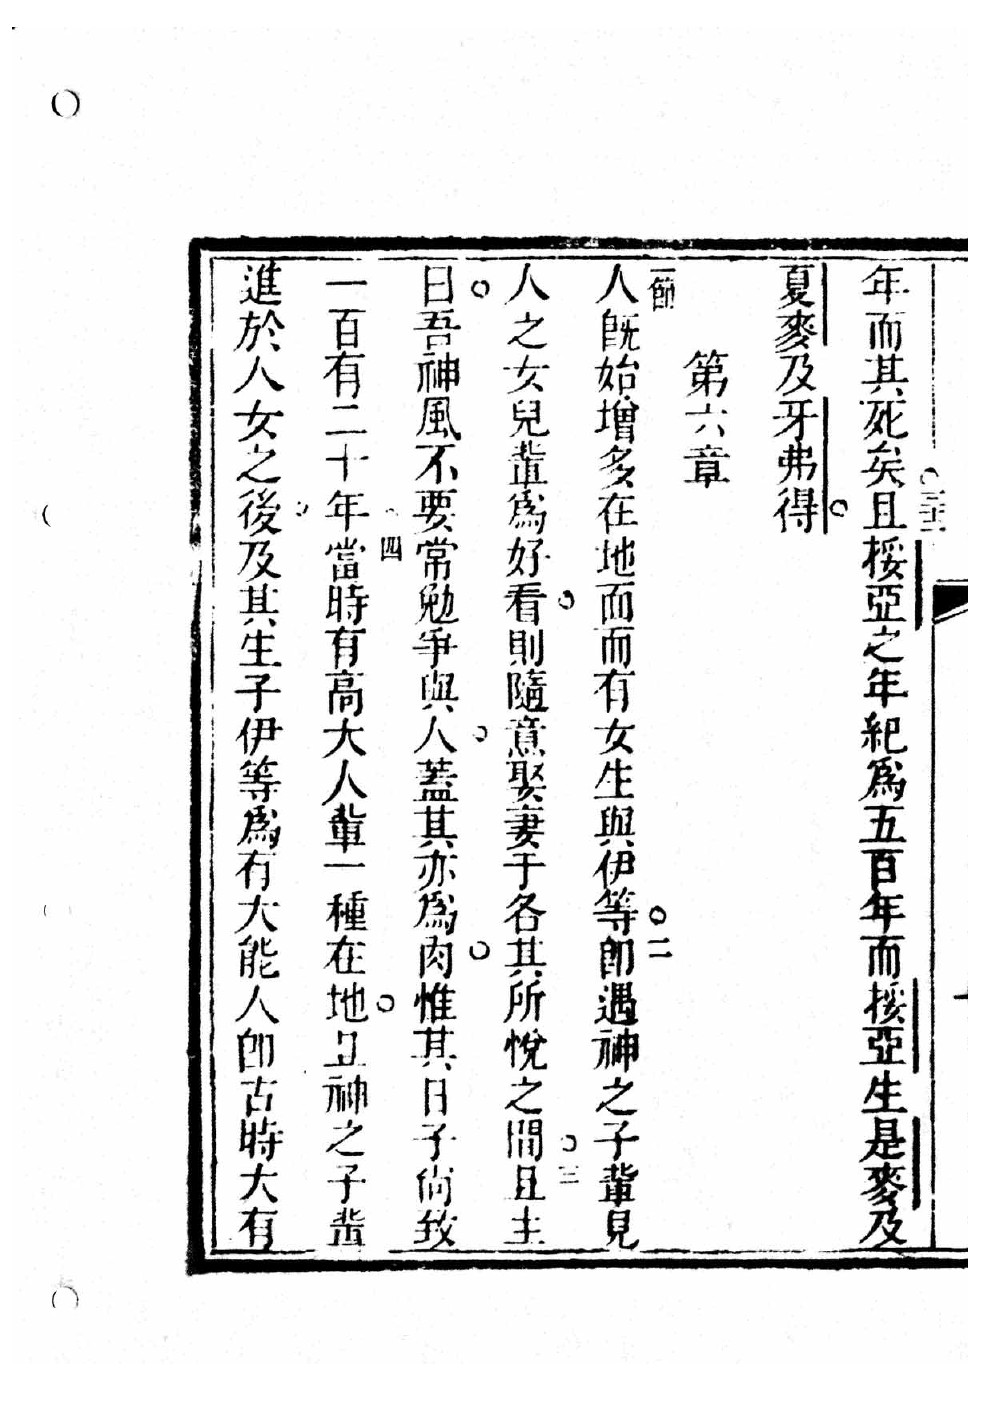 年而其死矣且挼亞之年紀爲五百年而挼亞生是麥及
夏麥及牙弗得
第六章
一節
人旣始增多在地面而有女生與伊等卽遇神之子輩見
二
人之女兒輩爲好看則隨意娶妻于各其所悅之間且主
三
曰吾神風不要常勉爭與人蓋其亦爲肉惟其日子尙致
一百有二十年當時有高大人輩一種在地且神之子輩
四
進於人女之後及其生子伊等爲有大能人卽古時大有